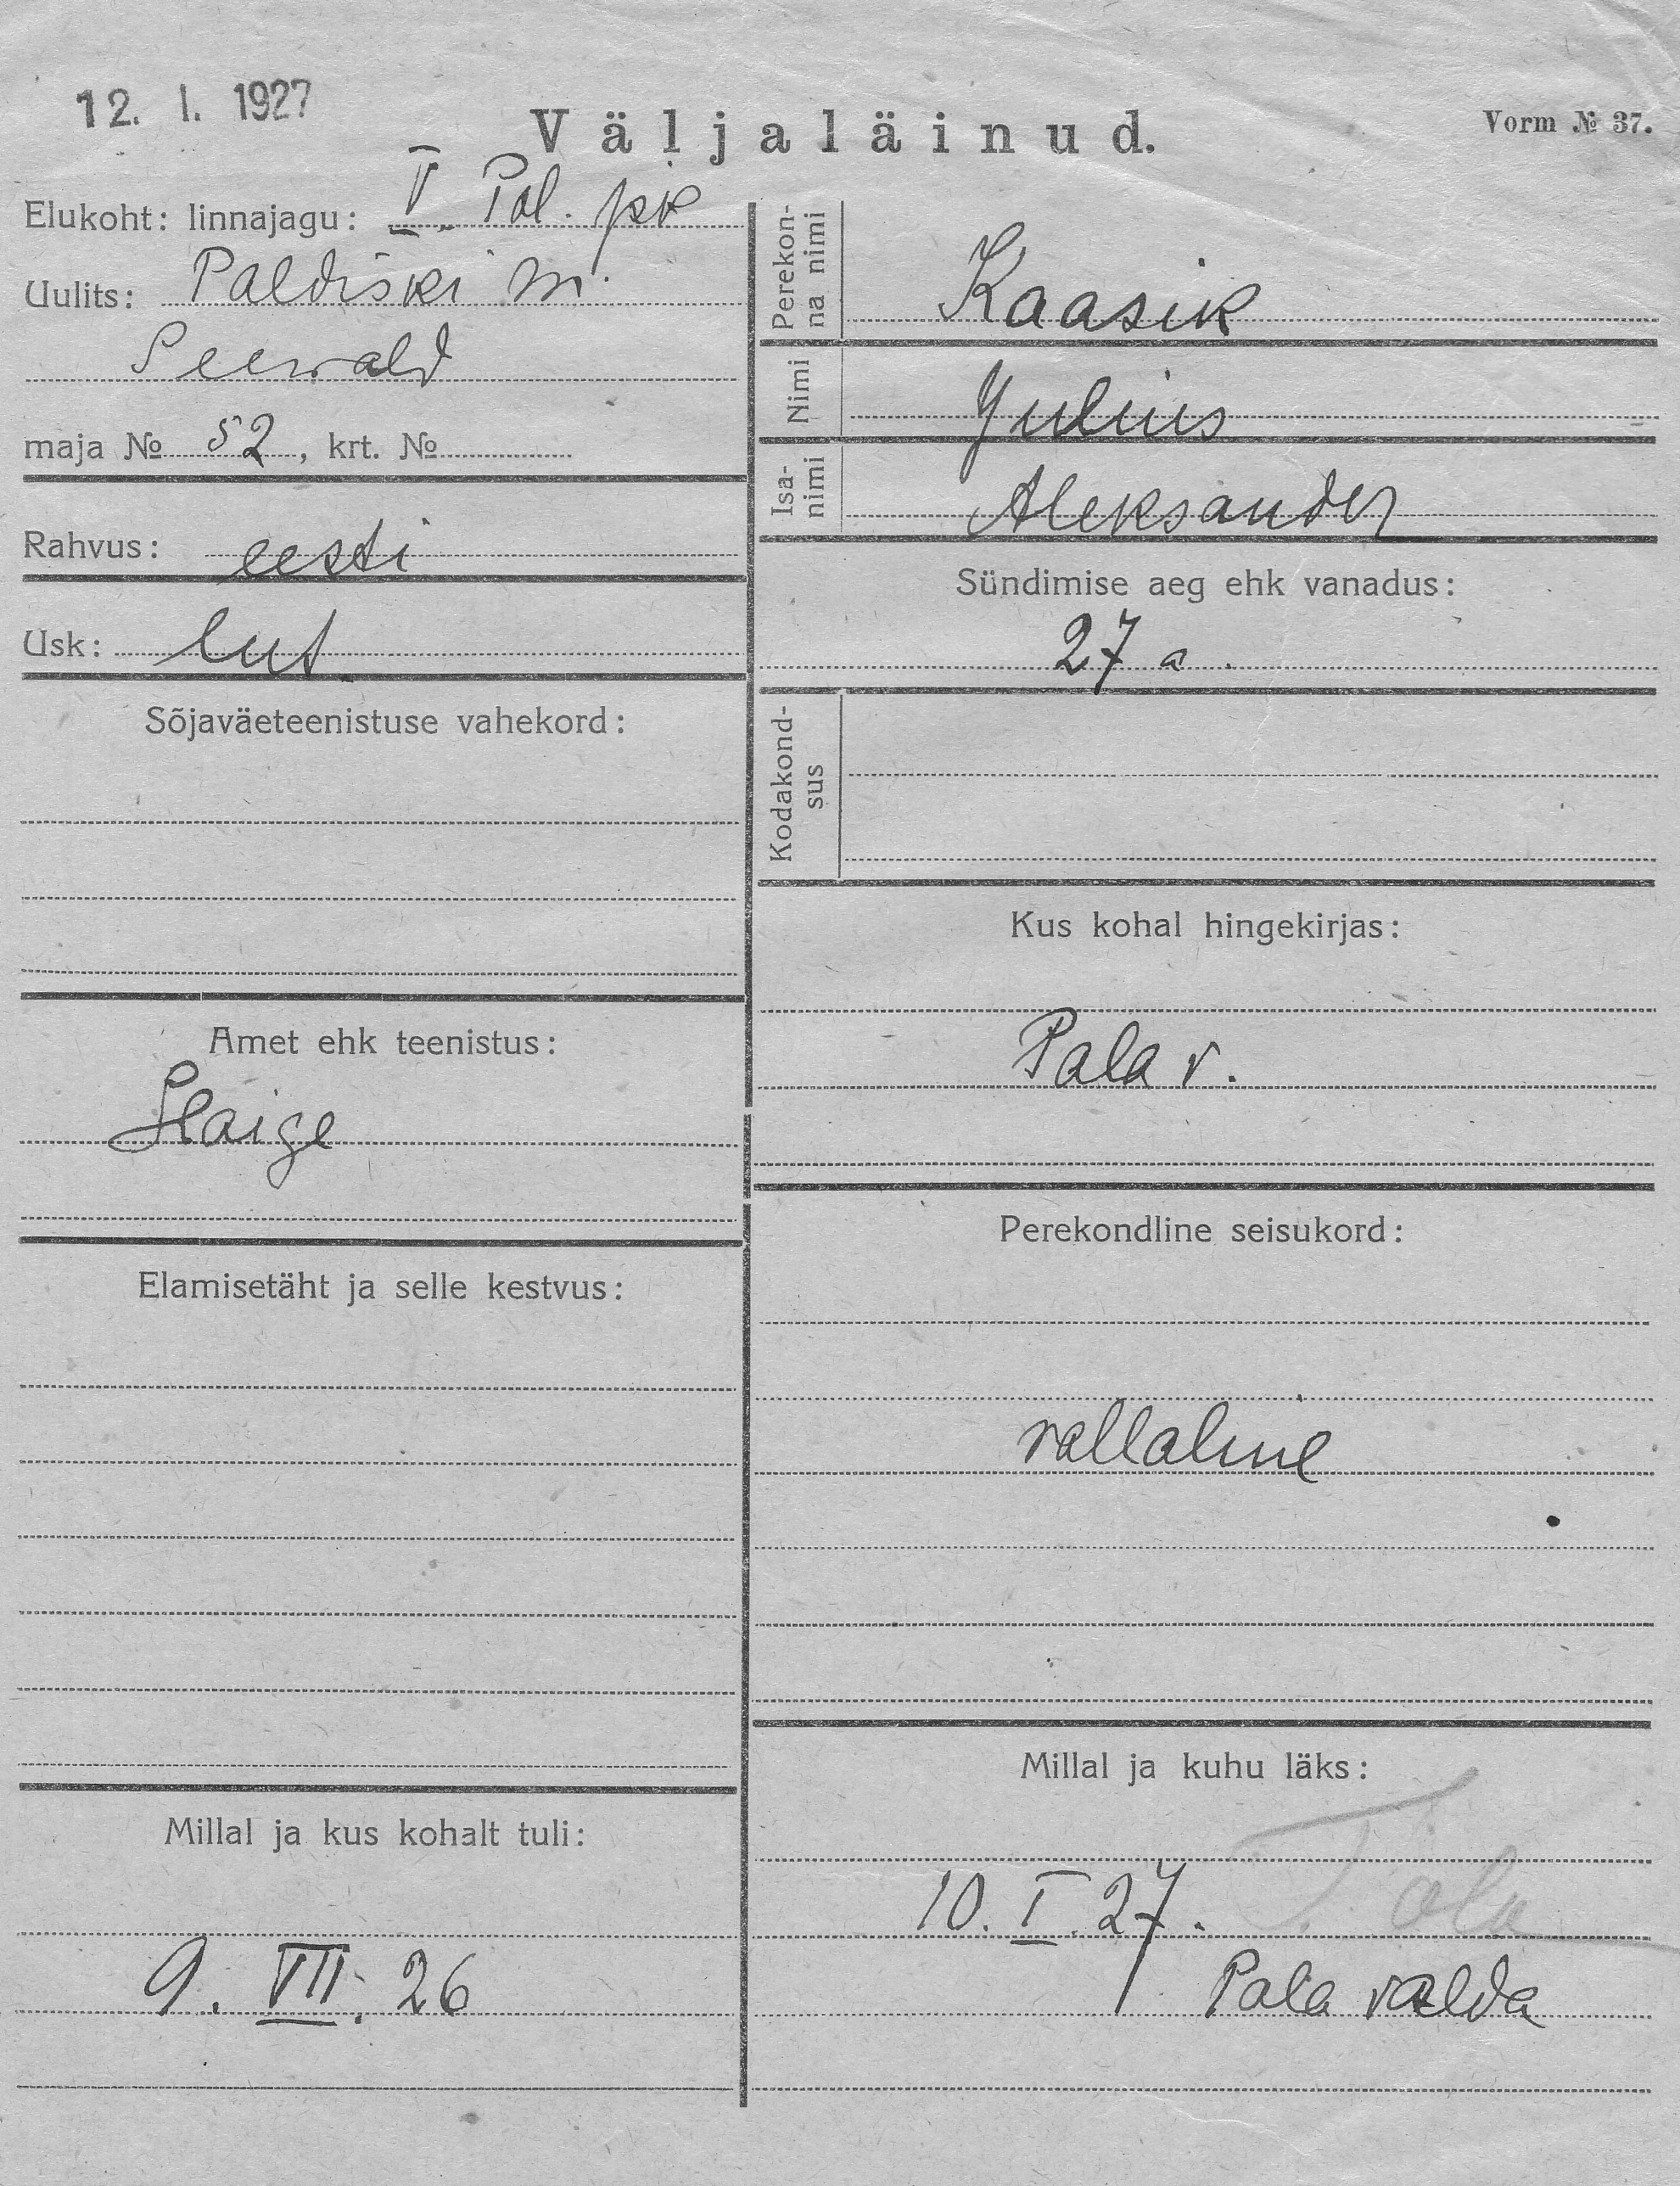 12. I. 1927
Väljaläinud.
Vorm № 37.
Elukoht: linnajagu: V Pol. jsk
Uulits: Paldiski m.
Seewald
maja № 52, krt. №
Rahvus: eesti
Usk: lut.
Sõjaväeteenistuse vahekord:
Amet ehk teenistus:
Haige
Elamisetäht ja selle kestvus:
Millal ja kus kohalt tuli:
9. VII. 26
Perekon-
na nimi
Kaasik
Nimi
Julius
Isa-
nimi
Aleksander
Sündimise aeg ehk vanadus:
27 a.
Kodakond-
sus
Kus kohal hingekirjas:
Pala v.
Perekondline seisukord:
vallaline
Millal ja kuhu läks:
10. I. 27.
Pala valda